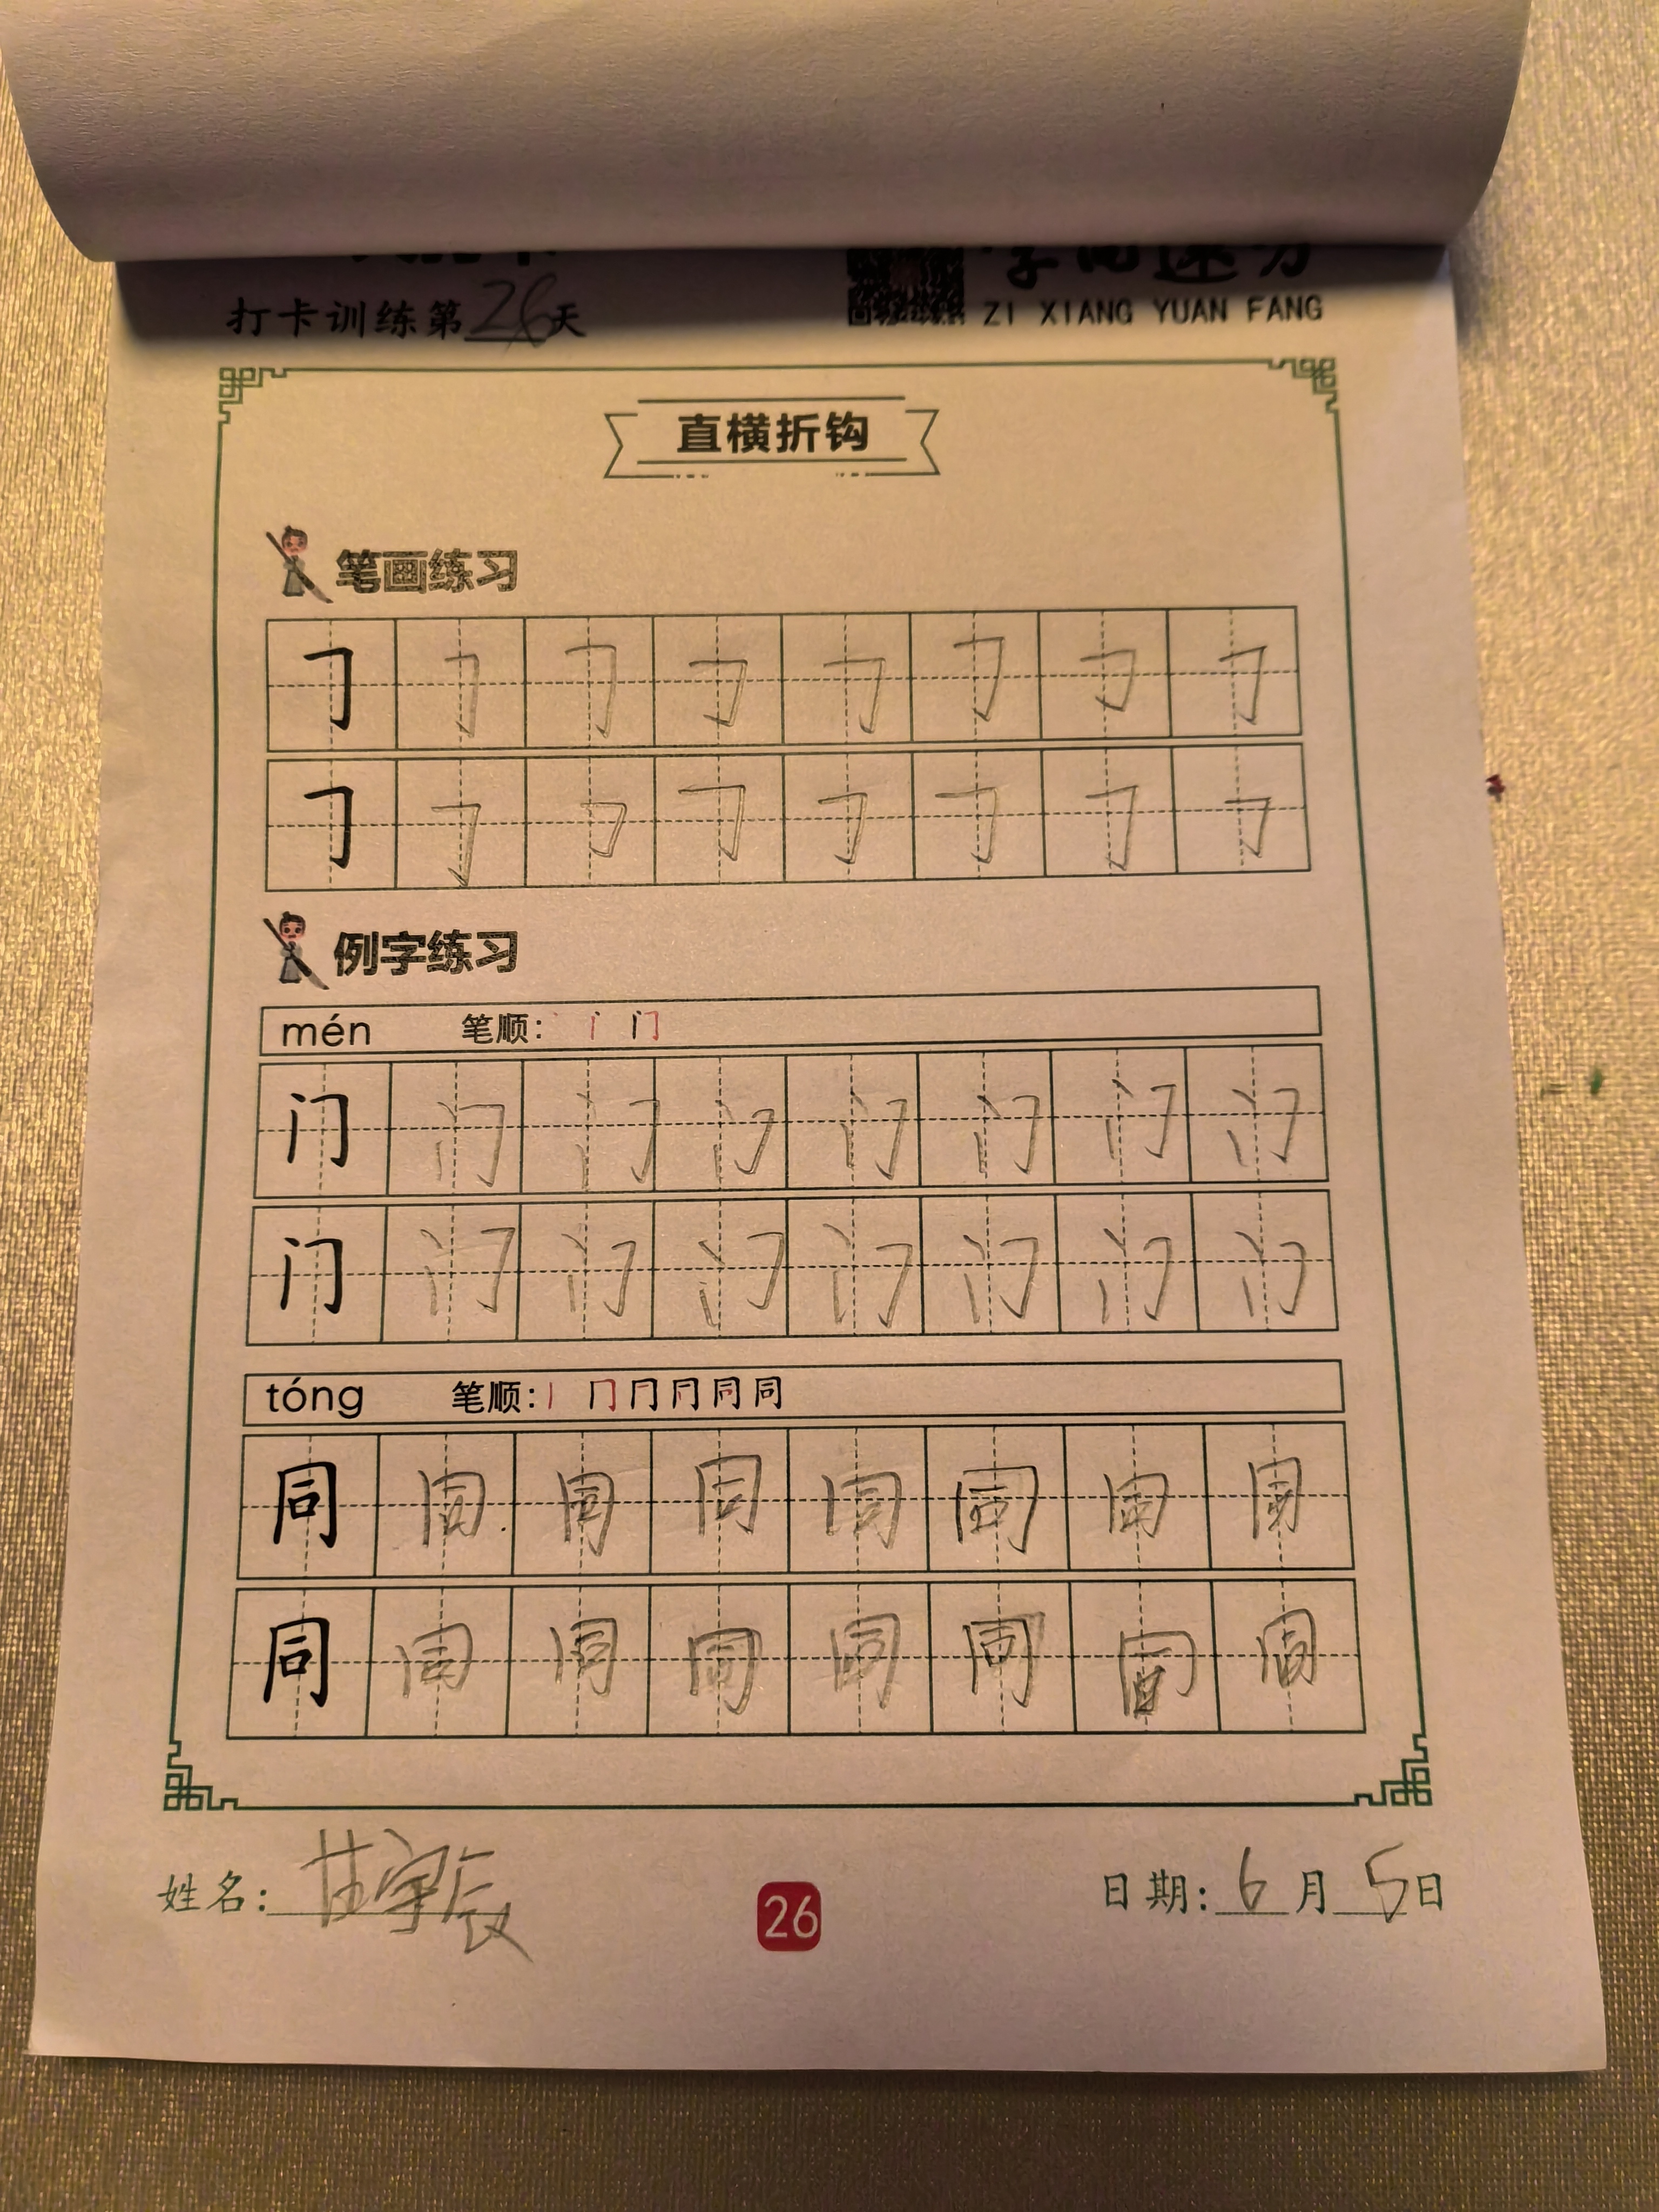 打卡训练第26天
ZI XIANG YUAN FANG
直横折钩
笔画练习
㇆ ㇆ ㇆ ㇆ ㇆ ㇆ ㇆ ㇆
㇆ ㇆ ㇆ ㇆ ㇆ ㇆ ㇆ ㇆
例字练习
mén 笔顺: 丶 丨 门
门 门 门 门 门 门 门 门
门 门 门 门 门 门 门 门
tóng 笔顺: 丨 冂 冂 冋 同 同
同 同 同 同 同 同 同 同
同 同 同 同 同 同 同 同
姓名: 甘宇辰
26
日期: 6月5日